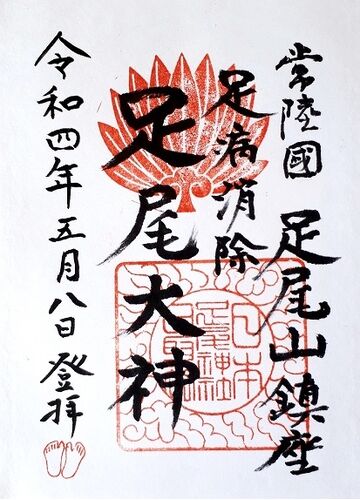 常陸國 足尾山鎮座
足病消除
足尾大神
令和四年五月八日 登拝